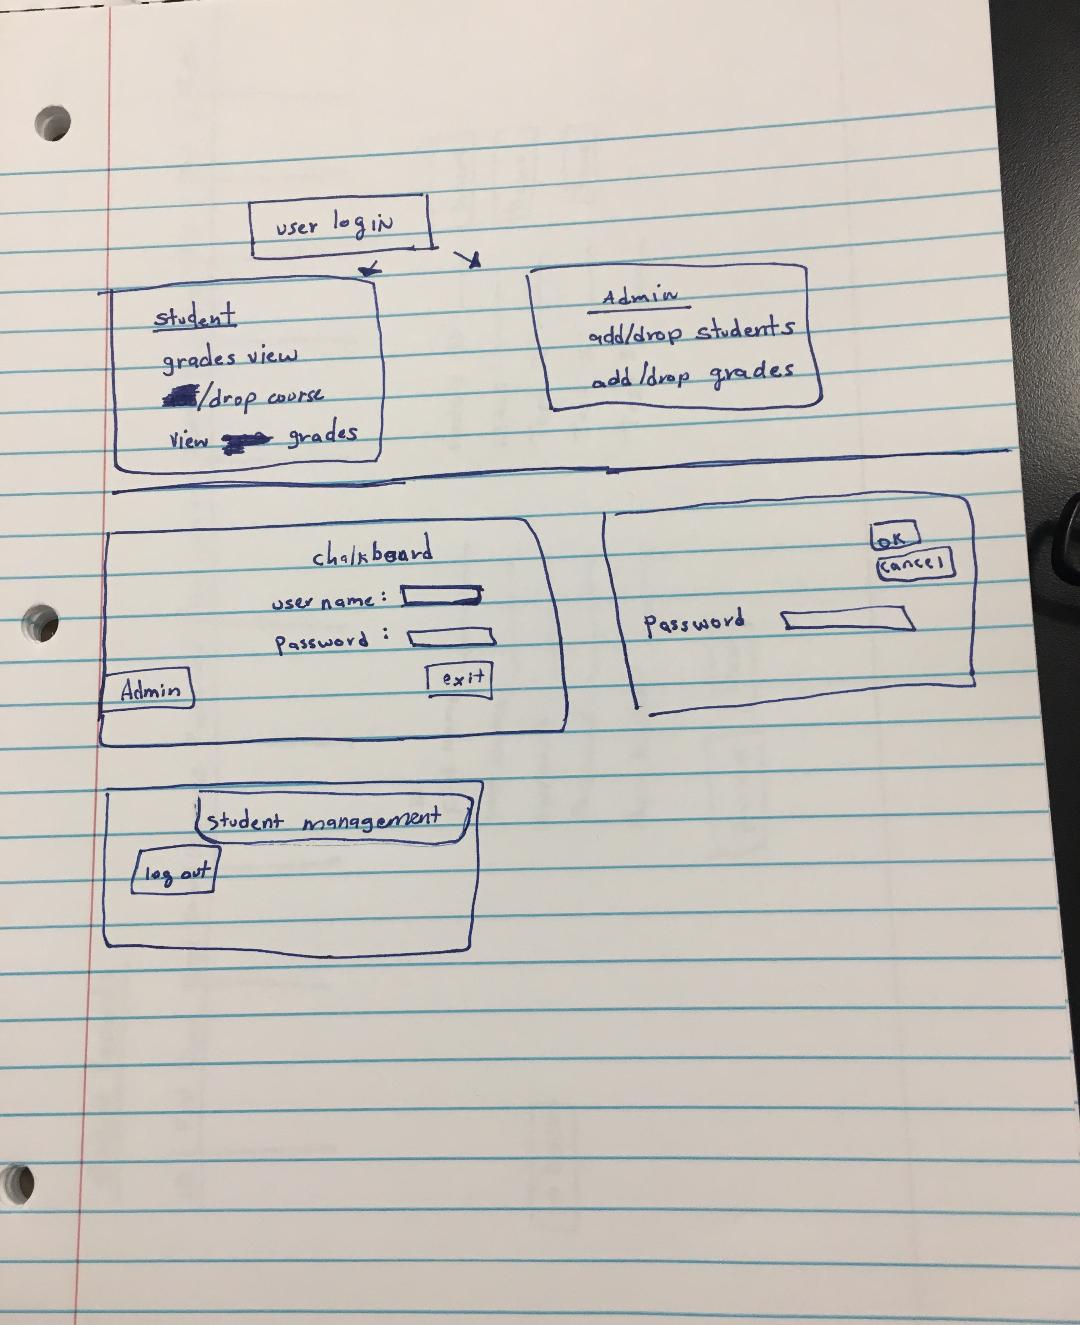 user login
student
grades view
/drop course
view grades
Admin
add/drop students
add/drop grades
chalkboard
user name:
Password:
Admin
exit
OK
cancel
Password
student management
log out